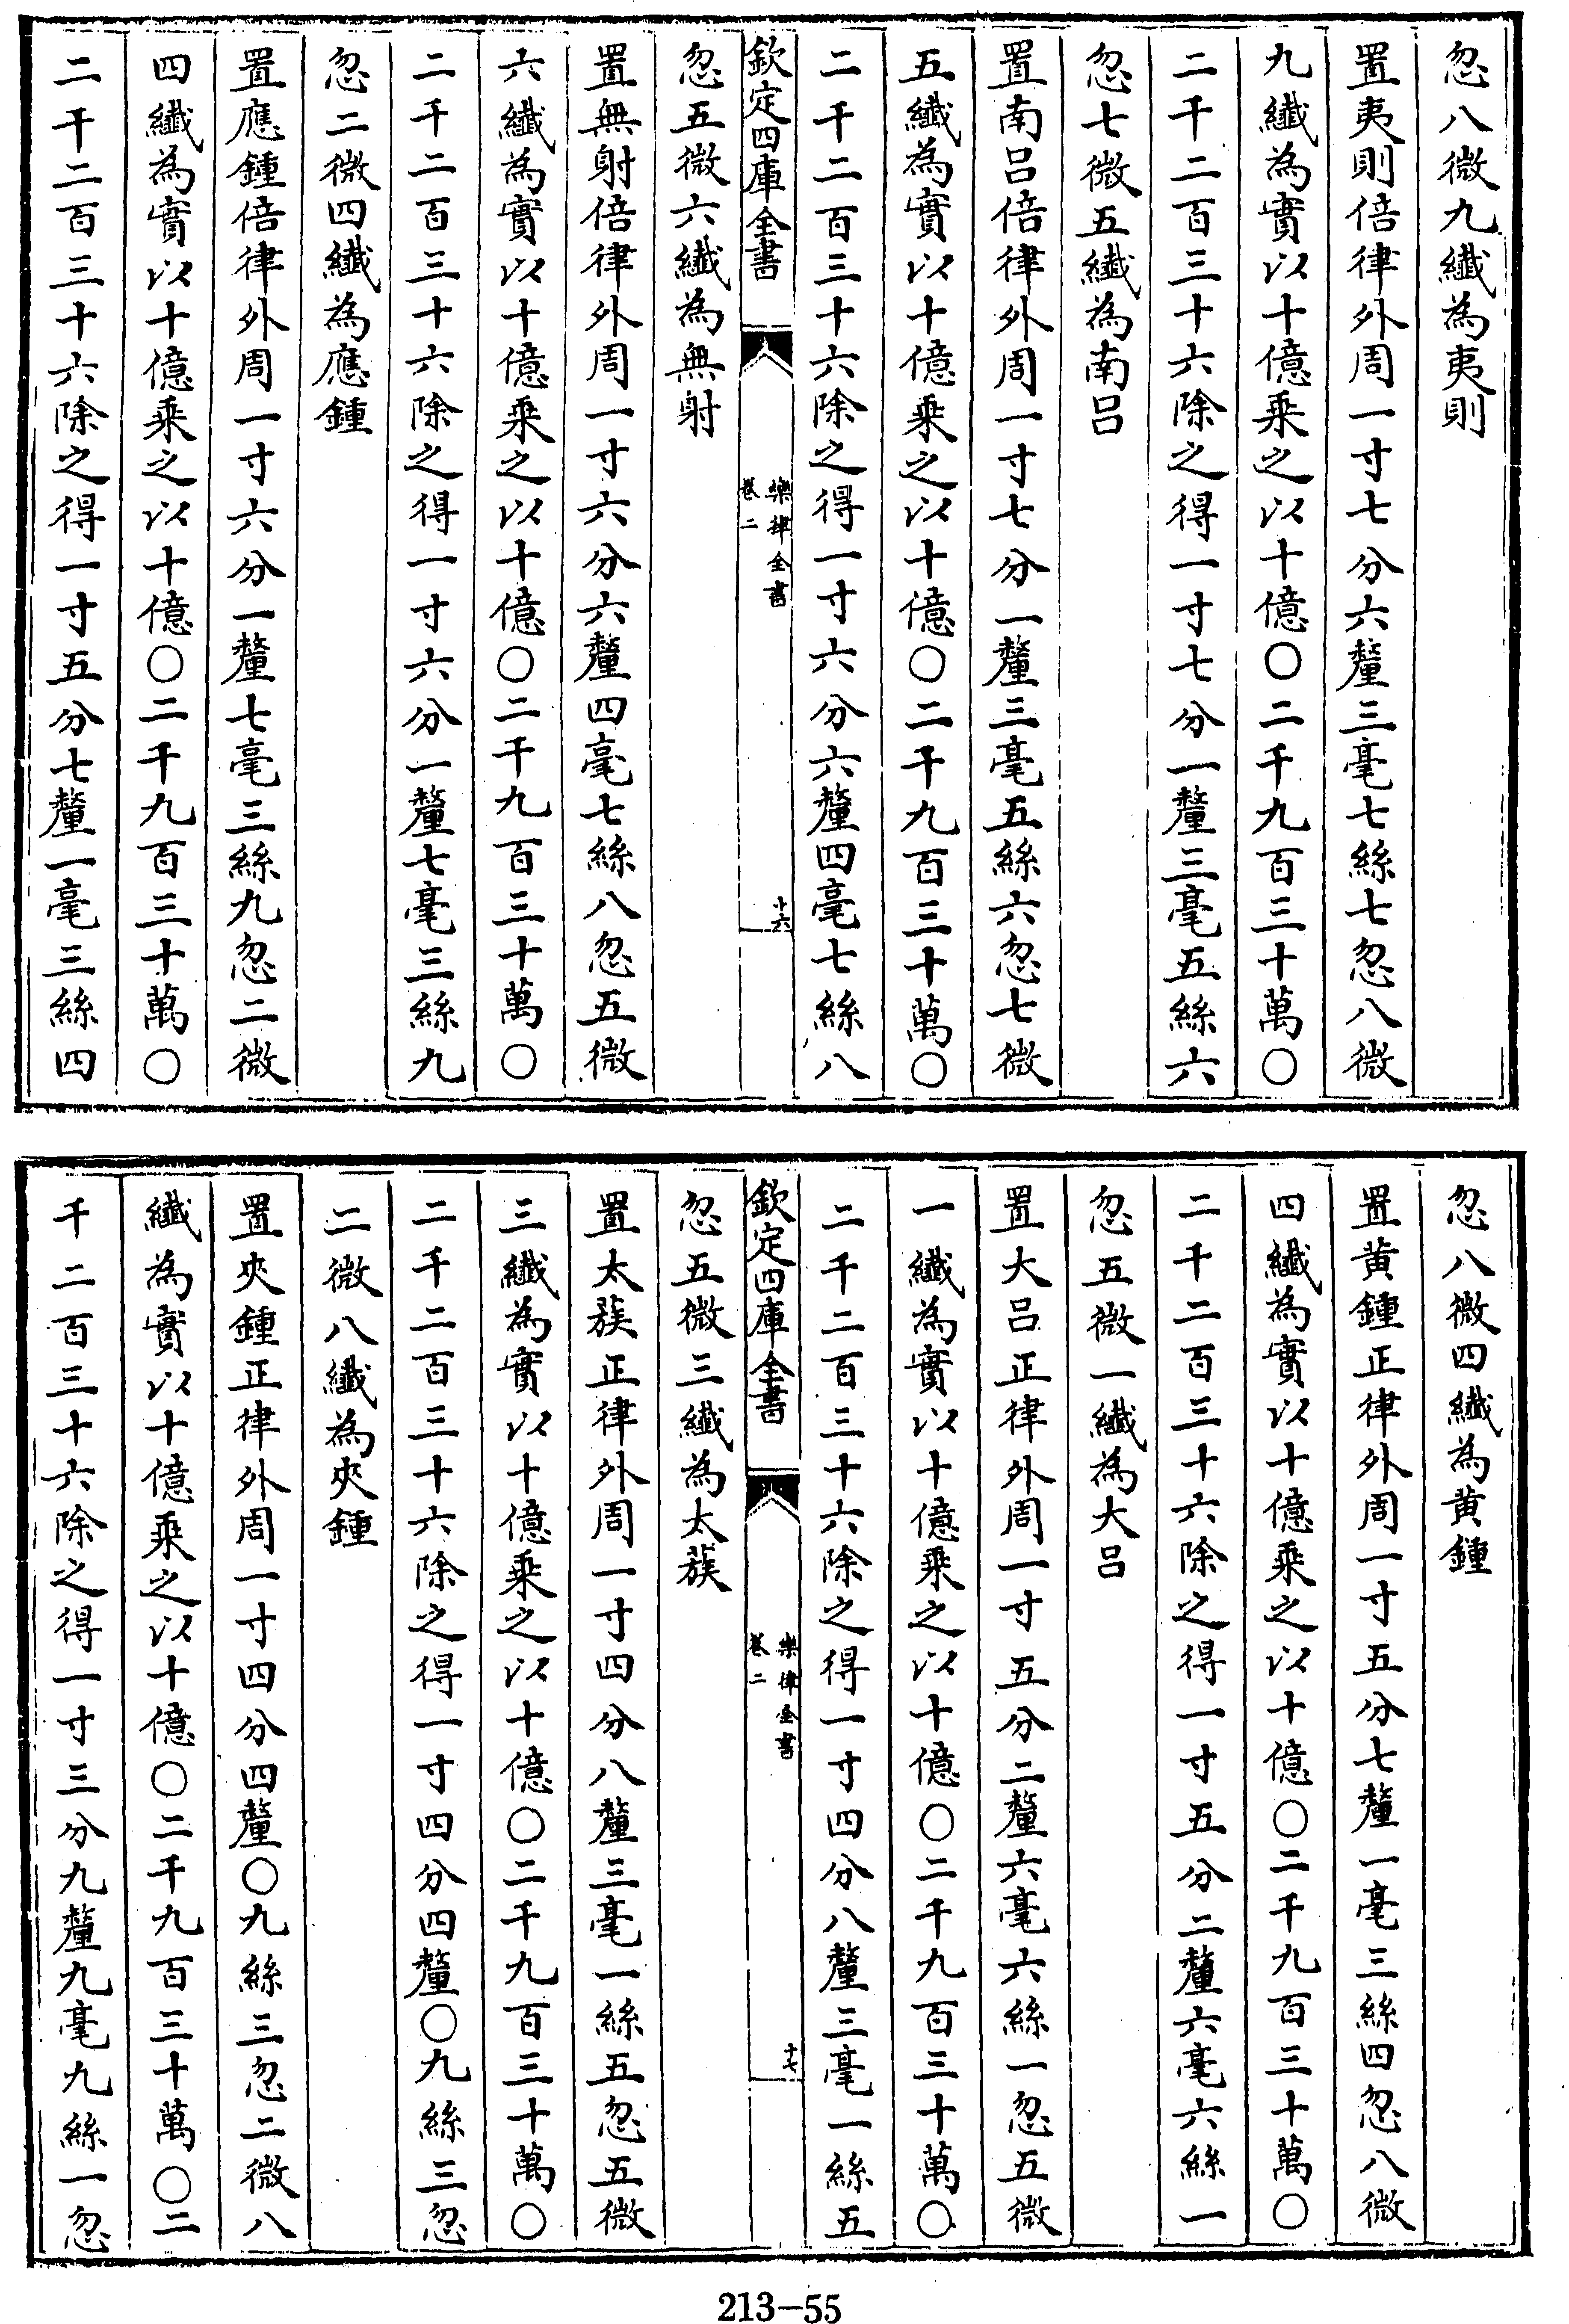 忽八微九纖為夷則
置夷則倍律外周一寸七分六釐三毫七絲七忽八微
九纖為實以十億乘之以十億〇二千九百三十萬〇
二千二百三十六除之得一寸七分一釐三毫五絲六
忽七微五纖為南呂
置南呂倍律外周一寸七分一釐三毫五絲六忽七微
五纖為實以十億乘之以十億〇二千九百三十萬〇
二千二百三十六除之得一寸六分六釐四毫七絲八
欽定四庫全書
樂律全書
卷二
十六
忽五微六纖為無射
置無射倍律外周一寸六分六釐四毫七絲八忽五微
六纖為實以十億乘之以十億〇二千九百三十萬〇
二千二百三十六除之得一寸六分一釐七毫三絲九
忽二微四纖為應鍾
置應鍾倍律外周一寸六分一釐七毫三絲九忽二微
四纖為實以十億乘之以十億〇二千九百三十萬〇
二千二百三十六除之得一寸五分七釐一毫三絲四
忽八微四纖為黃鍾
置黃鍾正律外周一寸五分七釐一毫三絲四忽八微
四纖為實以十億乘之以十億〇二千九百三十萬〇
二千二百三十六除之得一寸五分二釐六毫六絲一
忽五微一纖為大呂
置大呂正律外周一寸五分二釐六毫六絲一忽五微
一纖為實以十億乘之以十億〇二千九百三十萬〇
二千二百三十六除之得一寸四分八釐三毫一絲五
欽定四庫全書
樂律全書
卷二
十七
忽五微三纖為太蔟
置太蔟正律外周一寸四分八釐三毫一絲五忽五微
三纖為實以十億乘之以十億〇二千九百三十萬〇
二千二百三十六除之得一寸四分四釐〇九絲三忽
二微八纖為夾鍾
置夾鍾正律外周一寸四分四釐〇九絲三忽二微八
纖為實以十億乘之以十億〇二千九百三十萬〇二
千二百三十六除之得一寸三分九釐九毫九絲一忽
213-55